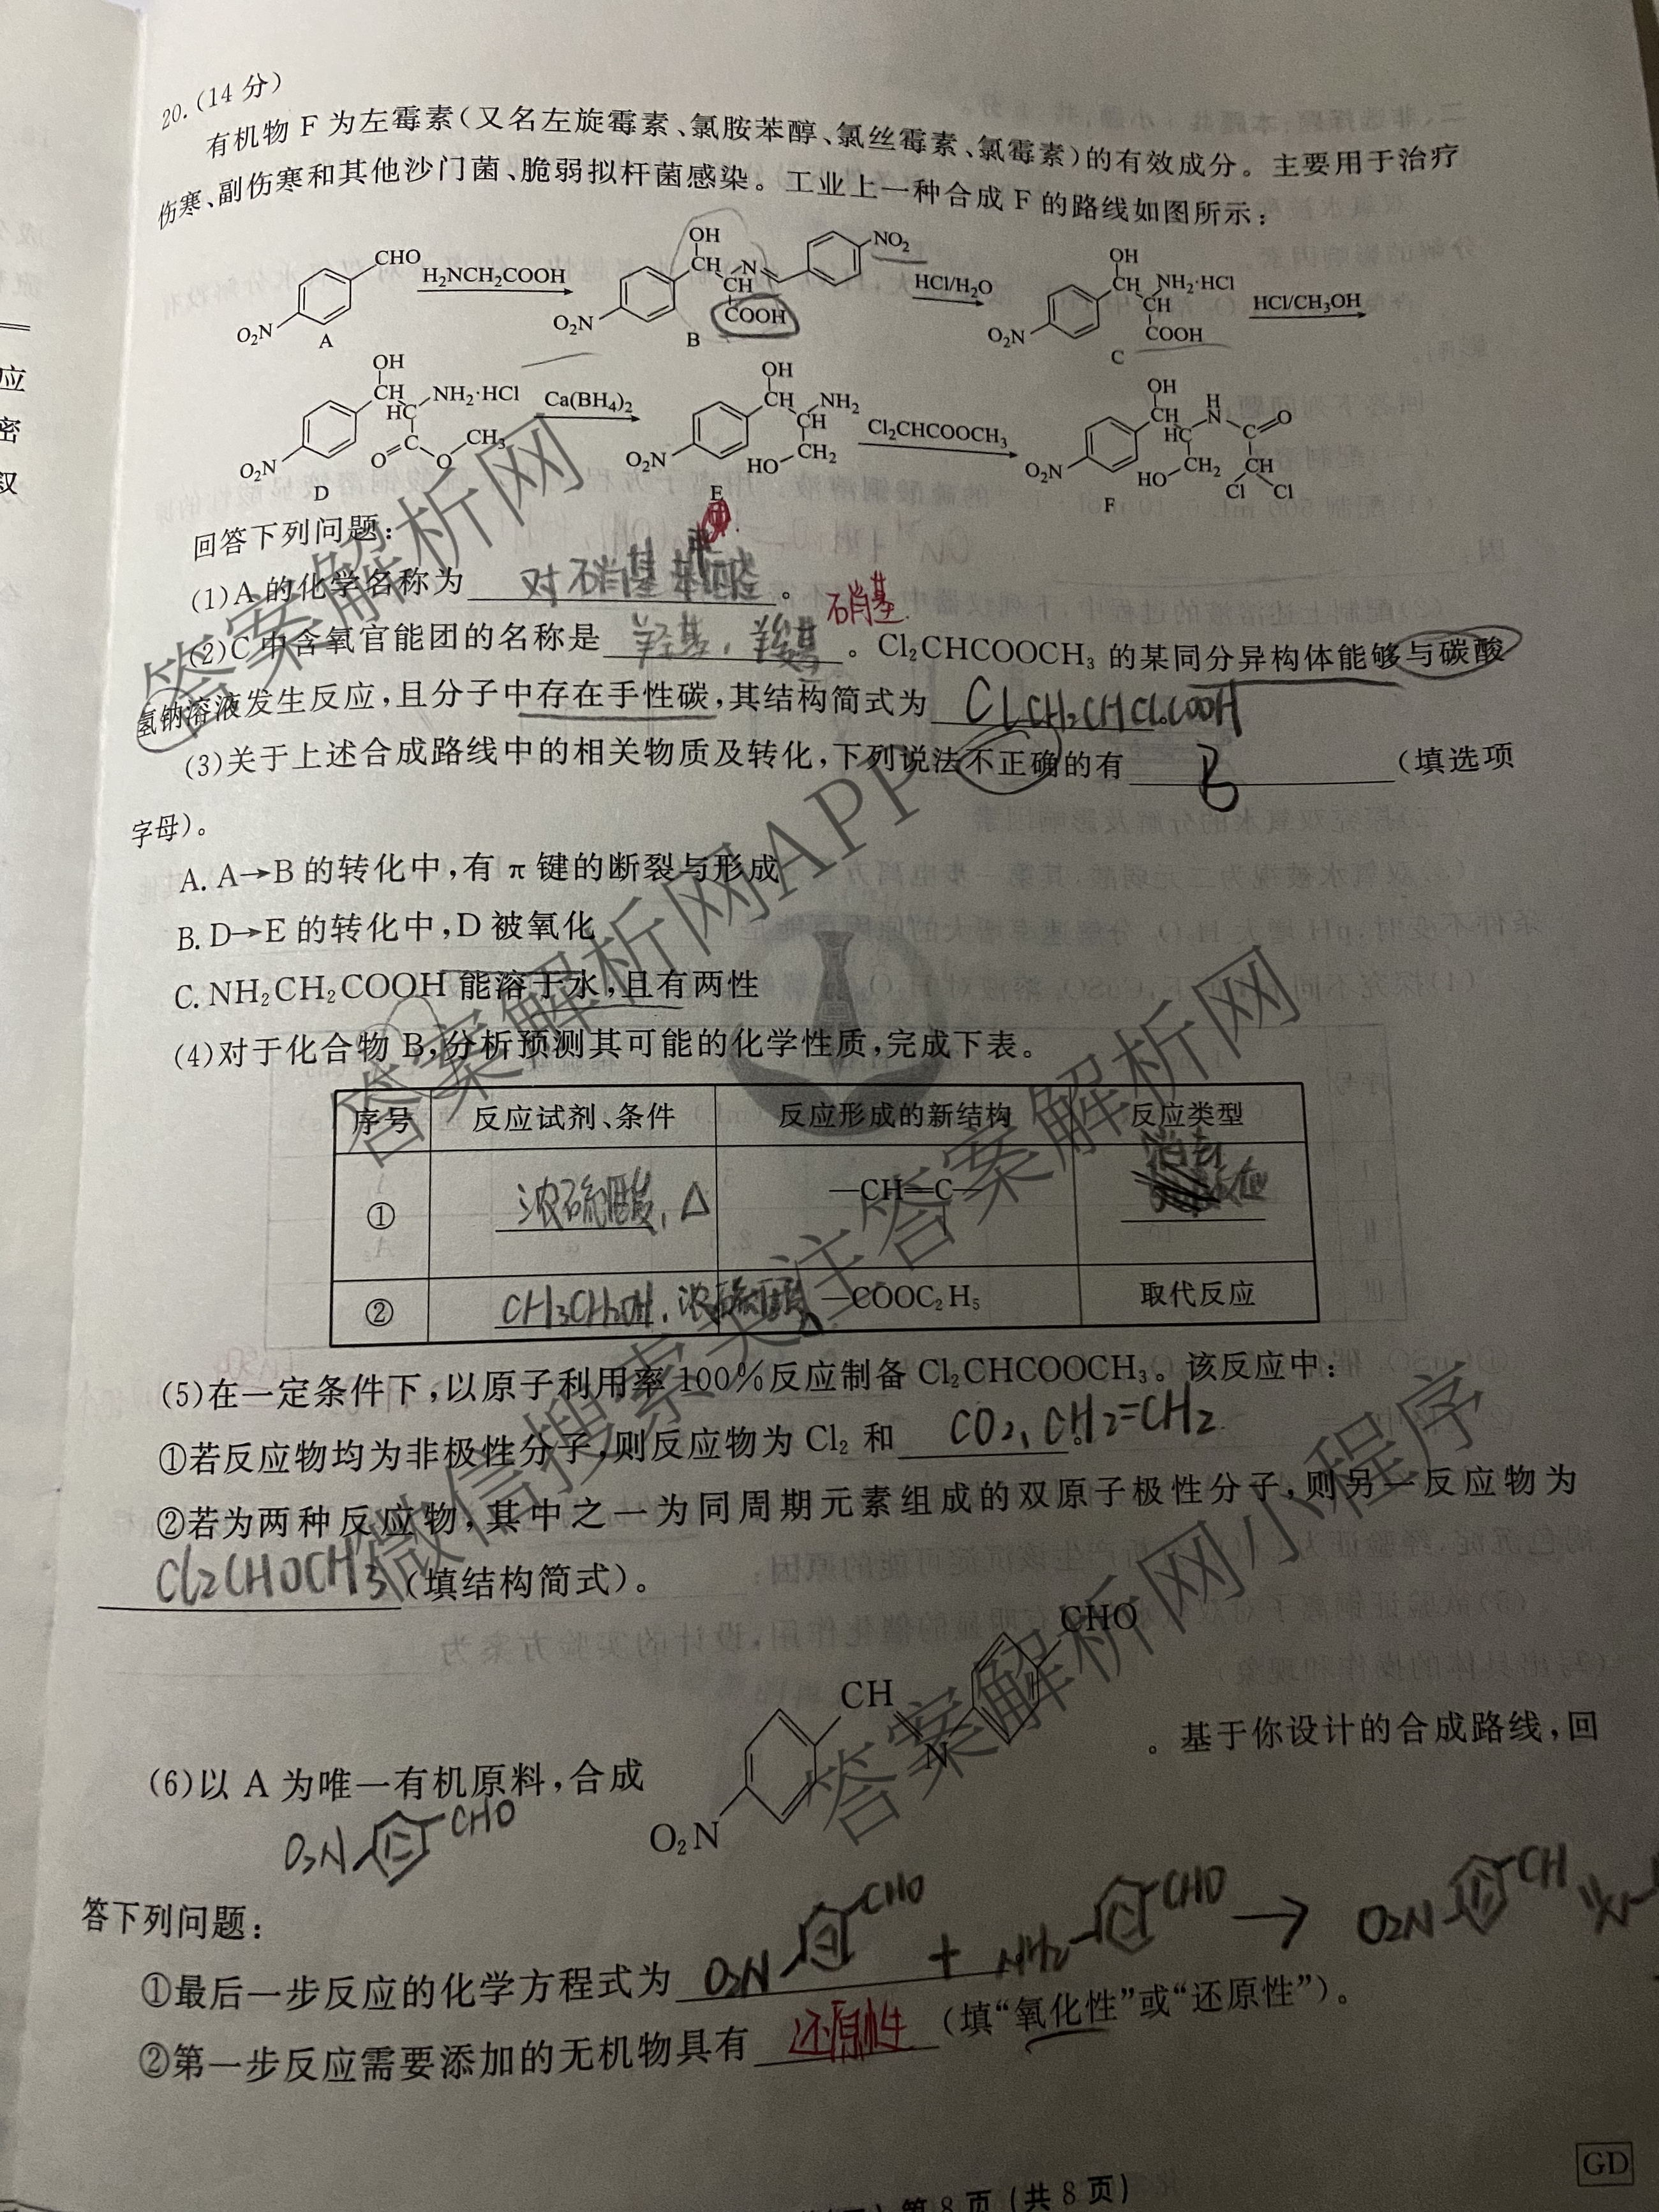 20.(14分)
有机物 F 为左霉素(又名左旋霉素、氯胺苯醇、氯丝霉素、氯霉素)的有效成分。主要用于治疗
伤寒、副伤寒和其他沙门菌、脆弱拟杆菌感染。工业上一种合成 F 的路线如图所示:
CHO O₂N A H₂NCH₂COOH OH CH N CH COOH O₂N NO₂ B HCl/H₂O OH CH NH₂·HCl CH COOH O₂N C HCl/CH₃OH
OH CH NH₂·HCl HC C O O CH₃ O₂N D Ca(BH₄)₂ OH CH NH₂ CH CH₂ HO O₂N E Cl₂CHCOOCH₃ OH CH H N HC CH₂ HO O CH Cl Cl O₂N F
回答下列问题:
(1)A 的化学名称为 对硝基苯甲醛 。
硝基
(2)C 中含氧官能团的名称是 羟基、羧基 。Cl₂CHCOOCH₃ 的某同分异构体能够与碳酸
氢钠溶液发生反应,且分子中存在手性碳,其结构简式为
(3)关于上述合成路线中的相关物质及转化,下列说法不正确的有 B (填选项
字母)。
A. A→B 的转化中,有 π 键的断裂与形成
B. D→E 的转化中,D 被氧化
C. NH₂CH₂COOH 能溶于水,且有两性
(4)对于化合物 B,分析预测其可能的化学性质,完成下表。
序号 反应试剂、条件 反应形成的新结构 反应类型
① 浓硫酸,△ —CH=C— 消去
② CH₃CH₂OH,浓硫酸,△ —COOC₂H₅ 取代反应
(5)在一定条件下,以原子利用率 100%反应制备 Cl₂CHCOOCH₃。该反应中:
①若反应物均为非极性分子,则反应物为 Cl₂ 和 CO₂、CH₂=CH₂ 。
②若为两种反应物,其中之一为同周期元素组成的双原子极性分子,则另一反应物为
Cl₂CHOCH₃ (填结构简式)。
CHO
CH
N
O₂N
(6)以 A 为唯一有机原料,合成 。基于你设计的合成路线,回
O₂N CHO
答下列问题:
①最后一步反应的化学方程式为 O₂N CHO + NH₂ CHO → O₂N CH
②第一步反应需要添加的无机物具有 还原性 (填“氧化性”或“还原性”)。
第 8 页(共 8 页)
GD
答案解析网
答案解析网APP
答案解析网
微信搜索关注答案解析网
答案解析网小程序